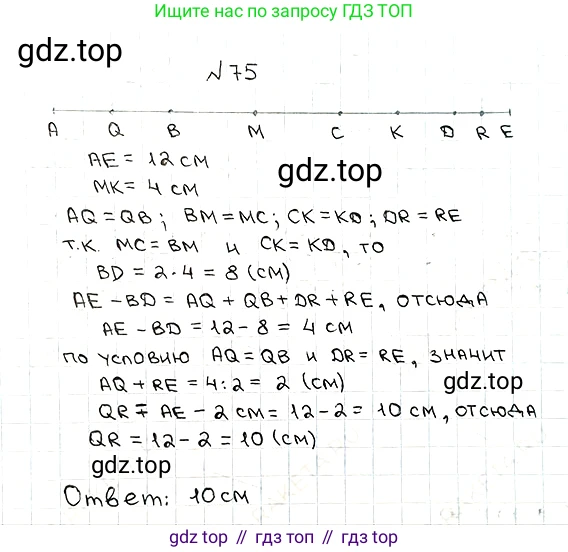 Ищите нас по запросу ГДЗ ТОП
gdz.top
№75
A Q B M C K D R E
AE = 12 см
gdz.top
MK = 4 см
AQ = QB; BM = MC; CK = KD; DR = RE
т.к. MC = BM и CK = KD, то
BD = 2·4 = 8 (см)
AE - BD = AQ + QB + DR + RE, отсюда
AE - BD = 12 - 8 = 4 см
по условию AQ = QB и DR = RE, значит
AQ + RE = 4:2 = 2 (см)
gdz.top
QR = AE - 2 см = 12 - 2 = 10 см, отсюда
QR = 12 - 2 = 10 (см)
gdz.top
Ответ: 10 см
продвинуто порталом gdz.top для вас